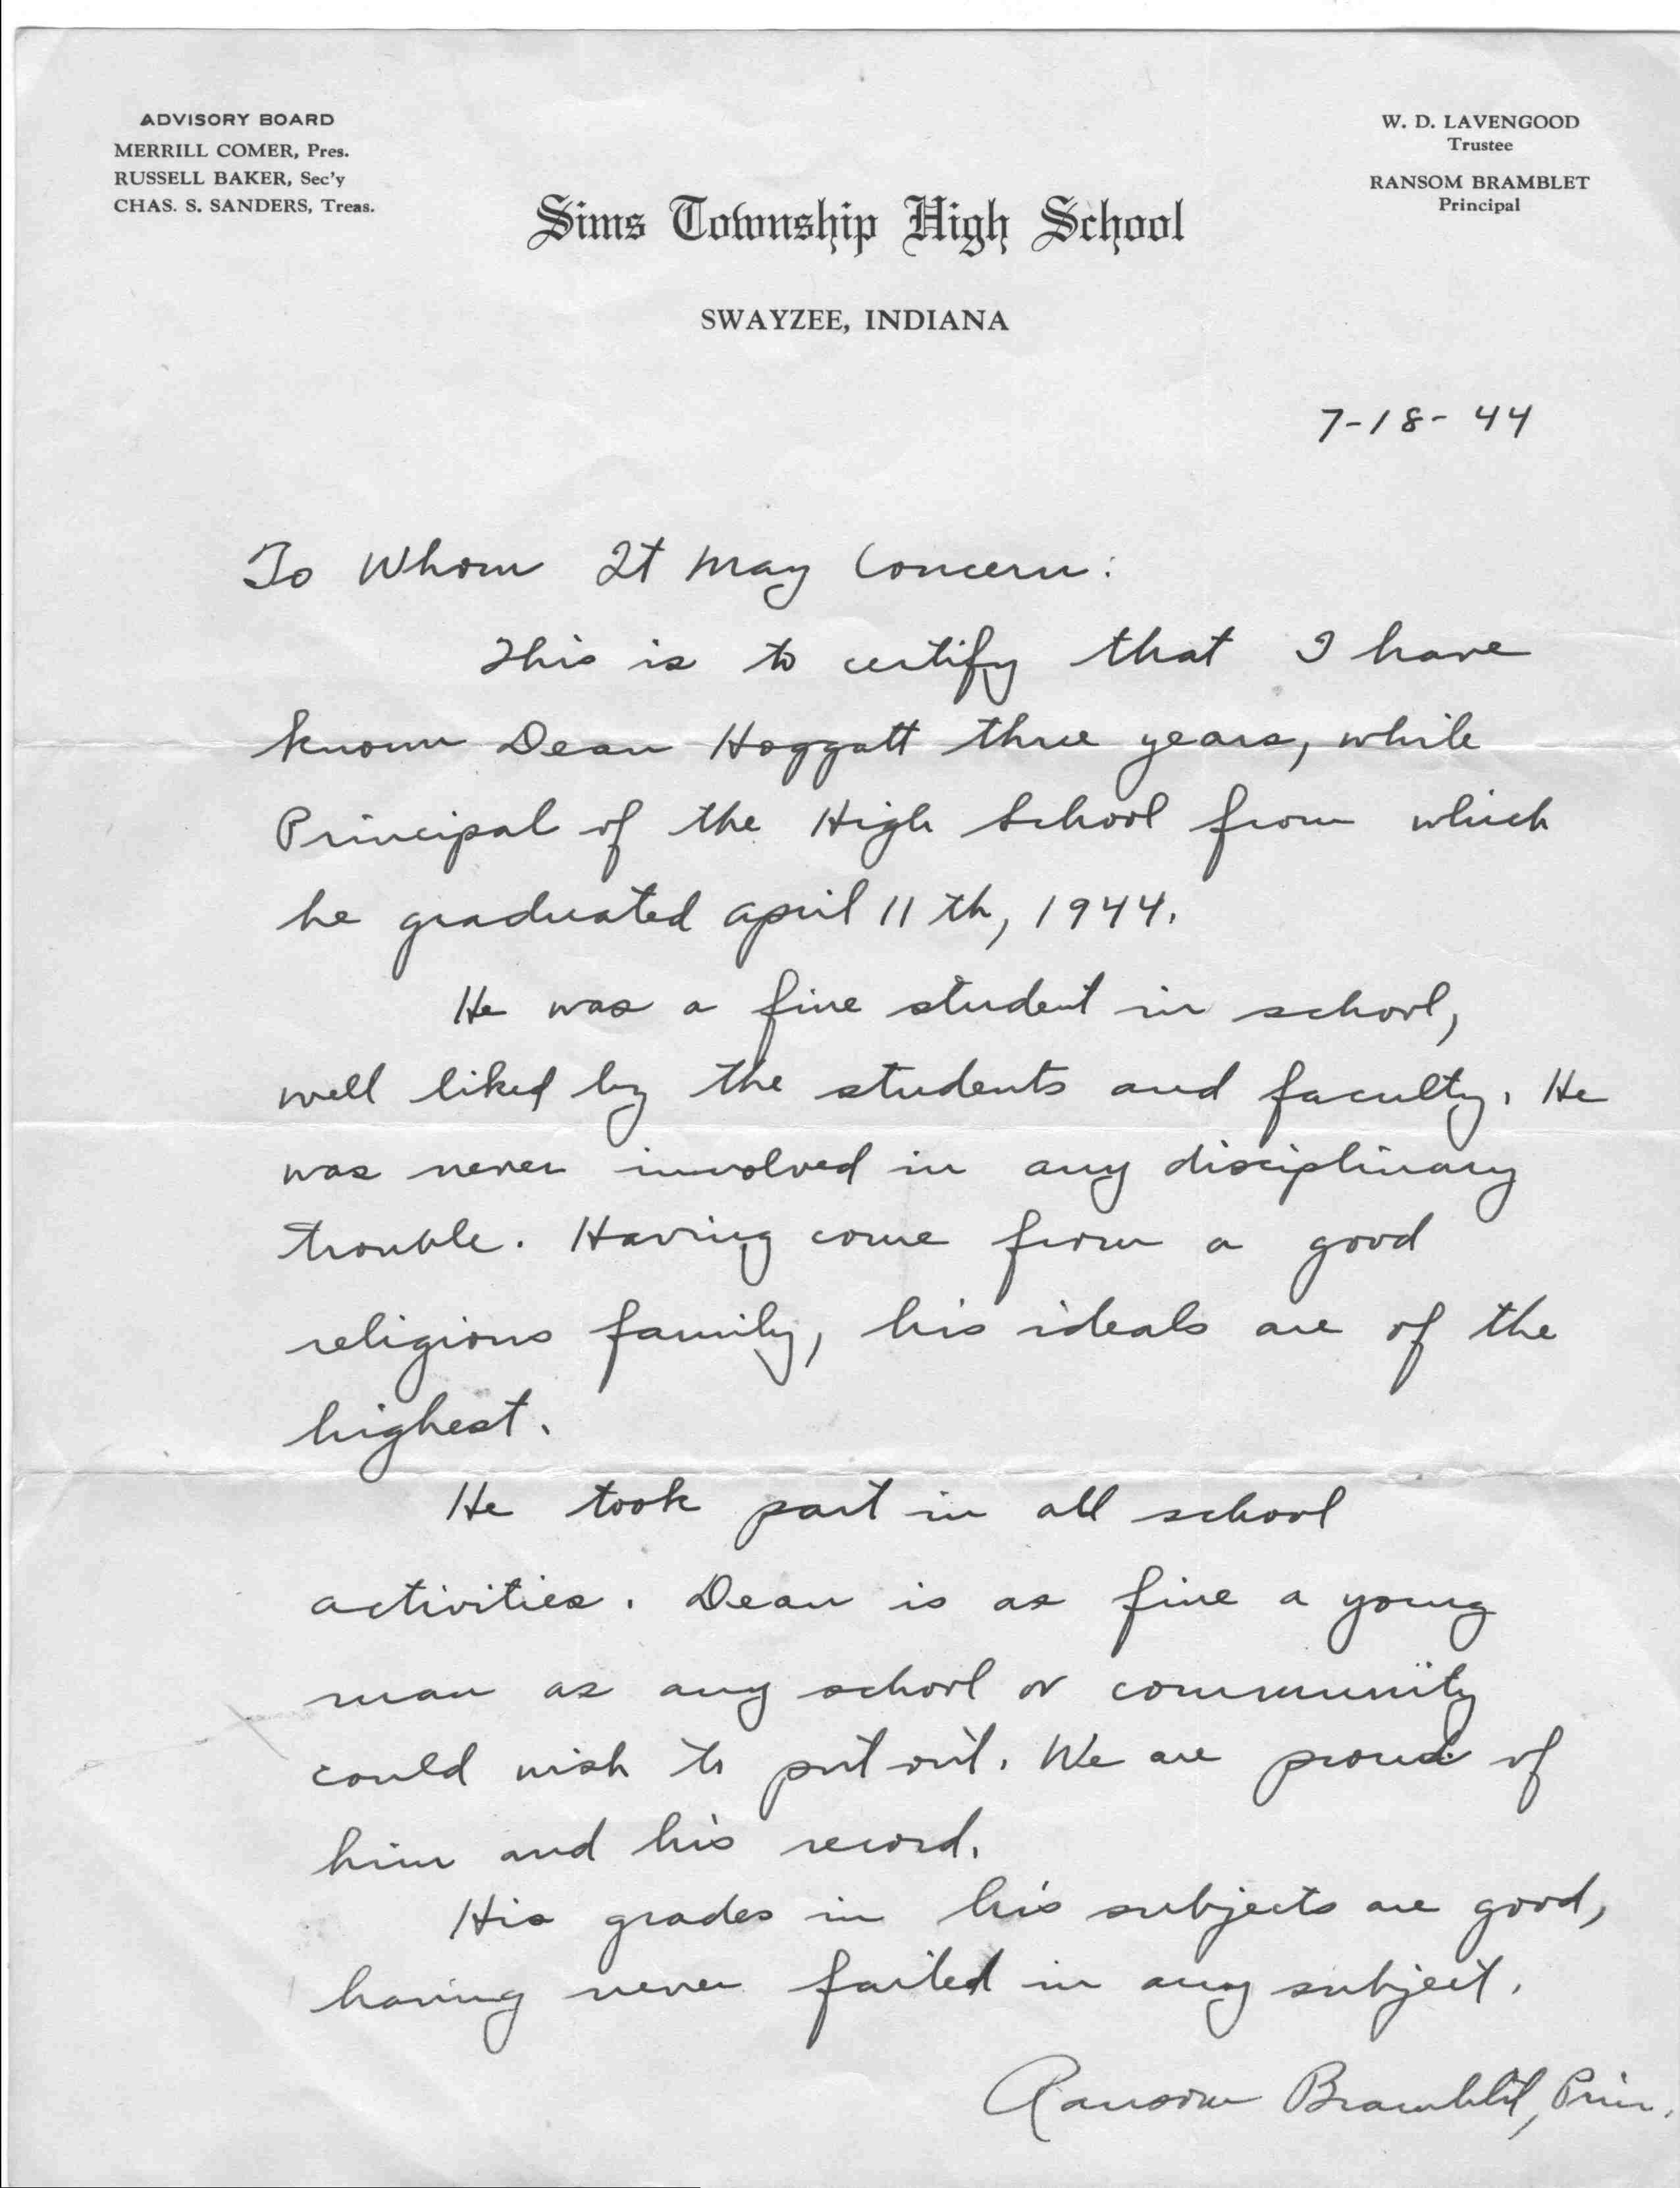 ADVISORY BOARD
MERRILL COMER, Pres.
RUSSELL BAKER, Sec'y
CHAS. S. SANDERS, Treas.
W. D. LAVENGOOD
Trustee
RANSOM BRAMBLET
Principal
Sims Township High School
SWAYZEE, INDIANA
7-18-44
To Whom It May Concern:
This is to certify that I have
known Dean Hoggatt three years, while
Principal of the High School from which
he graduated april 11th, 1944.
He was a fine student in school,
well liked by the students and faculty. He
was never involved in any disciplinary
trouble. Having come from a good
religious family, his ideals are of the
highest.
He took part in all school
activities. Dean is as fine a young
man as any school or community
could wish to put out. We are proud of
him and his record.
His grades in his subjects are good,
having never failed in any subject.
Ransom Bramblet, Prin.